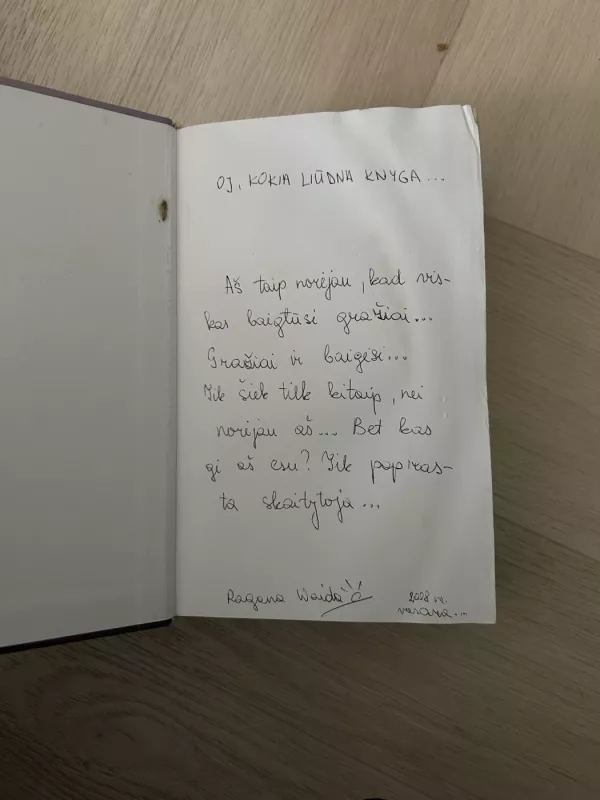 OJ, KOKIA LIŪDNA KNYGA...
Aš taip norėjau, kad vis-
kas baigtūsi gražiai...
Gražiai ir baigėsi...
Tik šiek tiek kitaip, nei
norėjau aš... Bet kas
gi aš esu? Tik papras-
ta skaitytoja...
Ragana Waida
2008 m.
vasara...